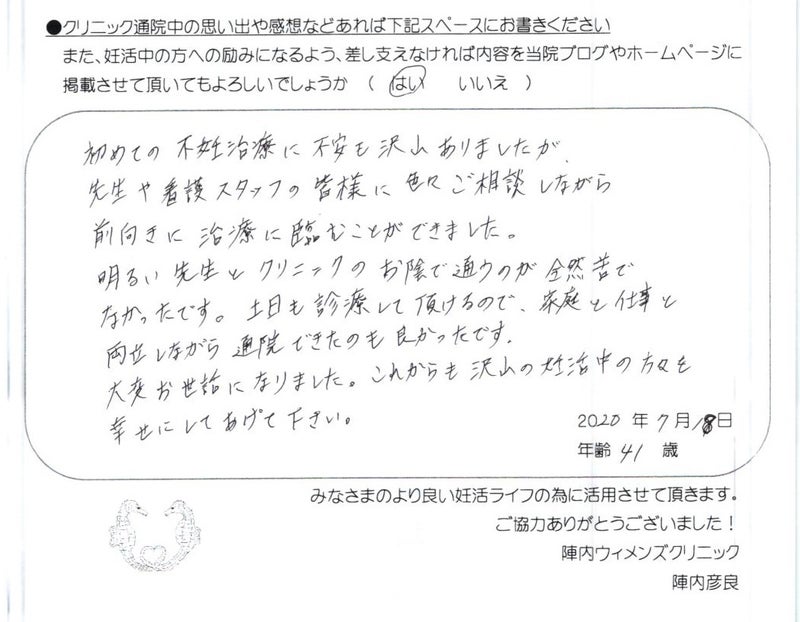 ●クリニック通院中の思い出や感想などあれば下記スペースにお書きください
また、妊活中の方への励みになるよう、差し支えなければ内容を当院ブログやホームページに
掲載させて頂いてもよろしいでしょうか （ はい いいえ ）
初めての不妊治療に不安も沢山ありましたが、
先生や看護スタッフの皆様に色々ご相談しながら
前向きに治療に臨むことができました。
明るい先生とクリニックのお陰で通うのが全然苦で
なかったです。土日も診療して頂けるので、家庭と仕事と
両立しながら通院できたのも良かったです。
大変お世話になりました。これからも沢山の妊活中の方々を
幸せにしてあげて下さい。
2020 年 7 月 18 日
年齢 41 歳
みなさまのより良い妊活ライフの為に活用させて頂きます。
ご協力ありがとうございました！
陣内ウィメンズクリニック
陣内彦良